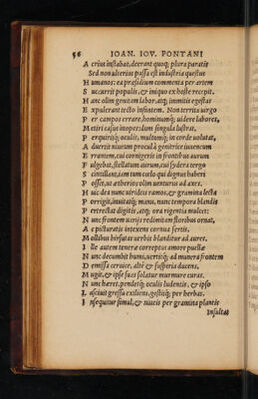 56 IOAN. IOV. PONTANI
A crius instabat, deerant quoque plura paratis
Sed non ulterius passa est industria questus
H umanos: ea præsidium commenta per artem
S uccurrit populis, & iniquo ex hoste recepit.
H anc olim genitam labor, atque immitis egestas
E xpulerant tecto infontem. Non territa uirgo
P er campos errare, hominumque uidere labores,
M etiri casus inopes: dum singula lustrat,
P erquiritque oculis, multumque in corde uolutat,
A duertit niueum procul à genitrice iuuencum
E rrantem, cui cornigeris in frontibus aurum
F ulgebat, stellatum aurum, cui sydera tergo
S cintillant, iam tum cælo qui dignus haberi
P osset, ut ætherios olim uenturus ad axes.
H uic dea nunc uirideis ramos, & gramina lecta
P orrigit, inuitatque manu, nunc tempora blandis
P ertectat digitis, atque ora rigentia mulcet:
N unc frontem uarijs redimit cum floribus ornat,
A c picturatis intexens cornua sertis.
M ollibus hirsutas uerbis blanditur ad aures.
I lle autem teneræ correptus amore puellæ
N unc decumbit humi, uertitque ad munera frontem
D emissa ceruice, alte & suspiria ducens,
M ugit, & ipse suas solatur murmure curas.
N unc hæret, pendetque oculis ludentis, & ipso
L asciuit gressu exiliens, gestitque per herbas.
I nsequitur simul, & niueis per gramina plantis
Insultat